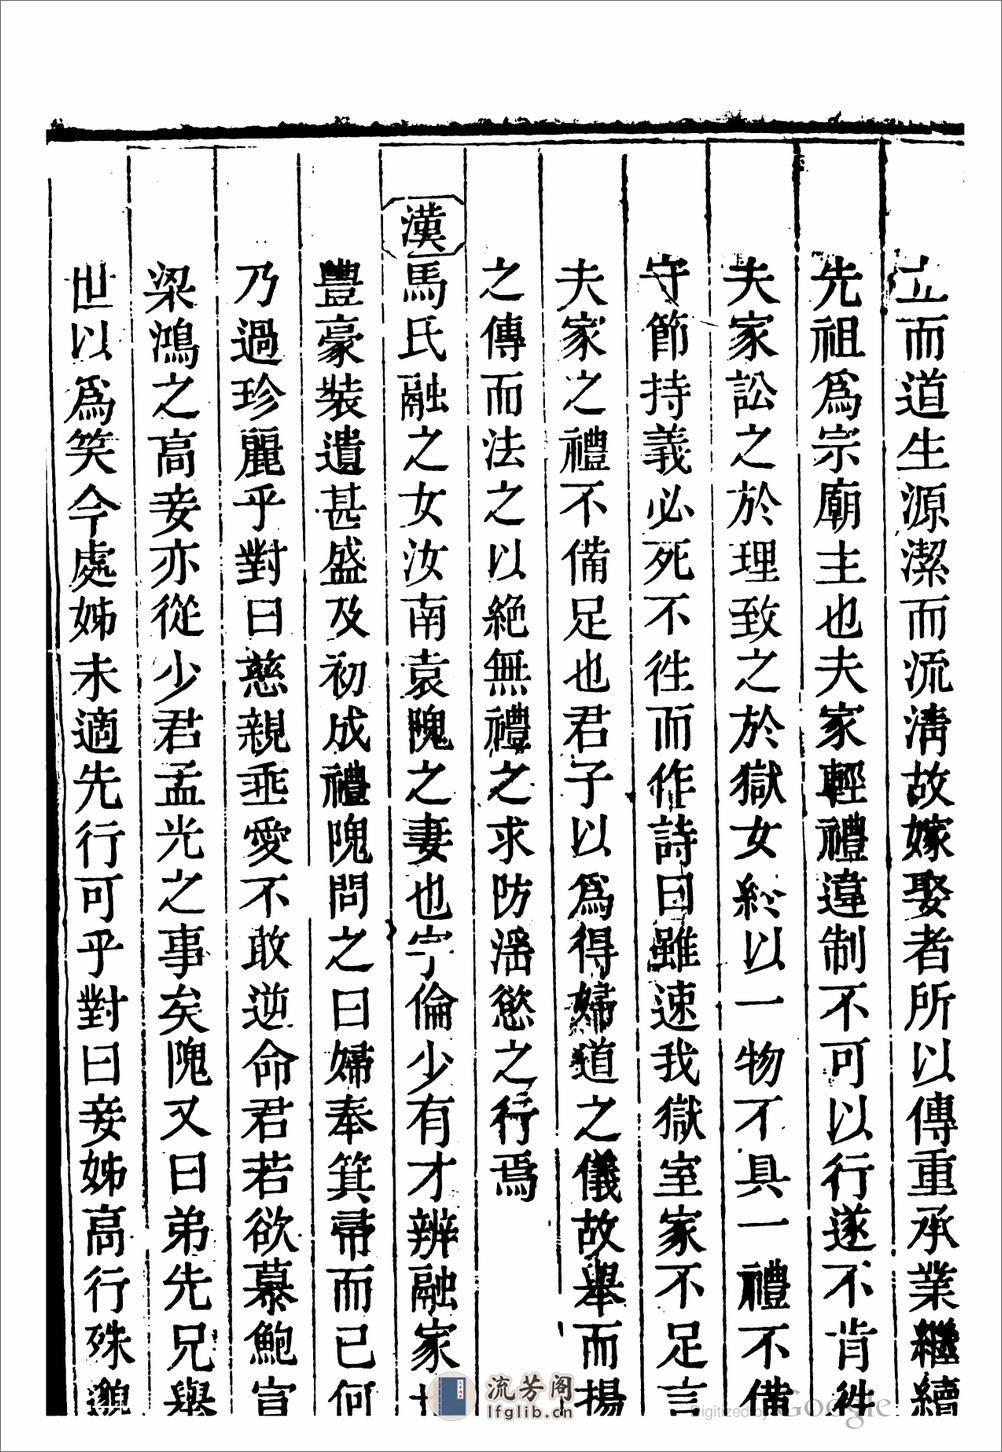 立而道生源潔而流清故嫁娶者所以傳重承業繼續
先祖爲宗廟主也夫家輕禮違制不可以行遂不肯徃
夫家訟之於理致之於獄女終以一物不具一禮不備
守節持義必死不徃而作詩曰雖速我獄室家不足言
夫家之禮不備足也君子以爲得婦道之儀故舉而揚
之傳而法之以絶無禮之求防淫慾之行焉
漢
馬氏融之女汝南袁隗之妻也字倫少有才辨融家
豐豪裝遺甚盛及初成禮隗問之曰婦奉箕帚而已何
乃過珍麗乎對曰慈親垂愛不敢逆命君若欲慕鮑宣
梁鴻之高妾亦從少君孟光之事矣隗又曰弟先兄舉
世以爲笑今處姊未適先行可乎對曰妾姊高行殊邈
流芳阁
lfglib.cn
Digitized by Google